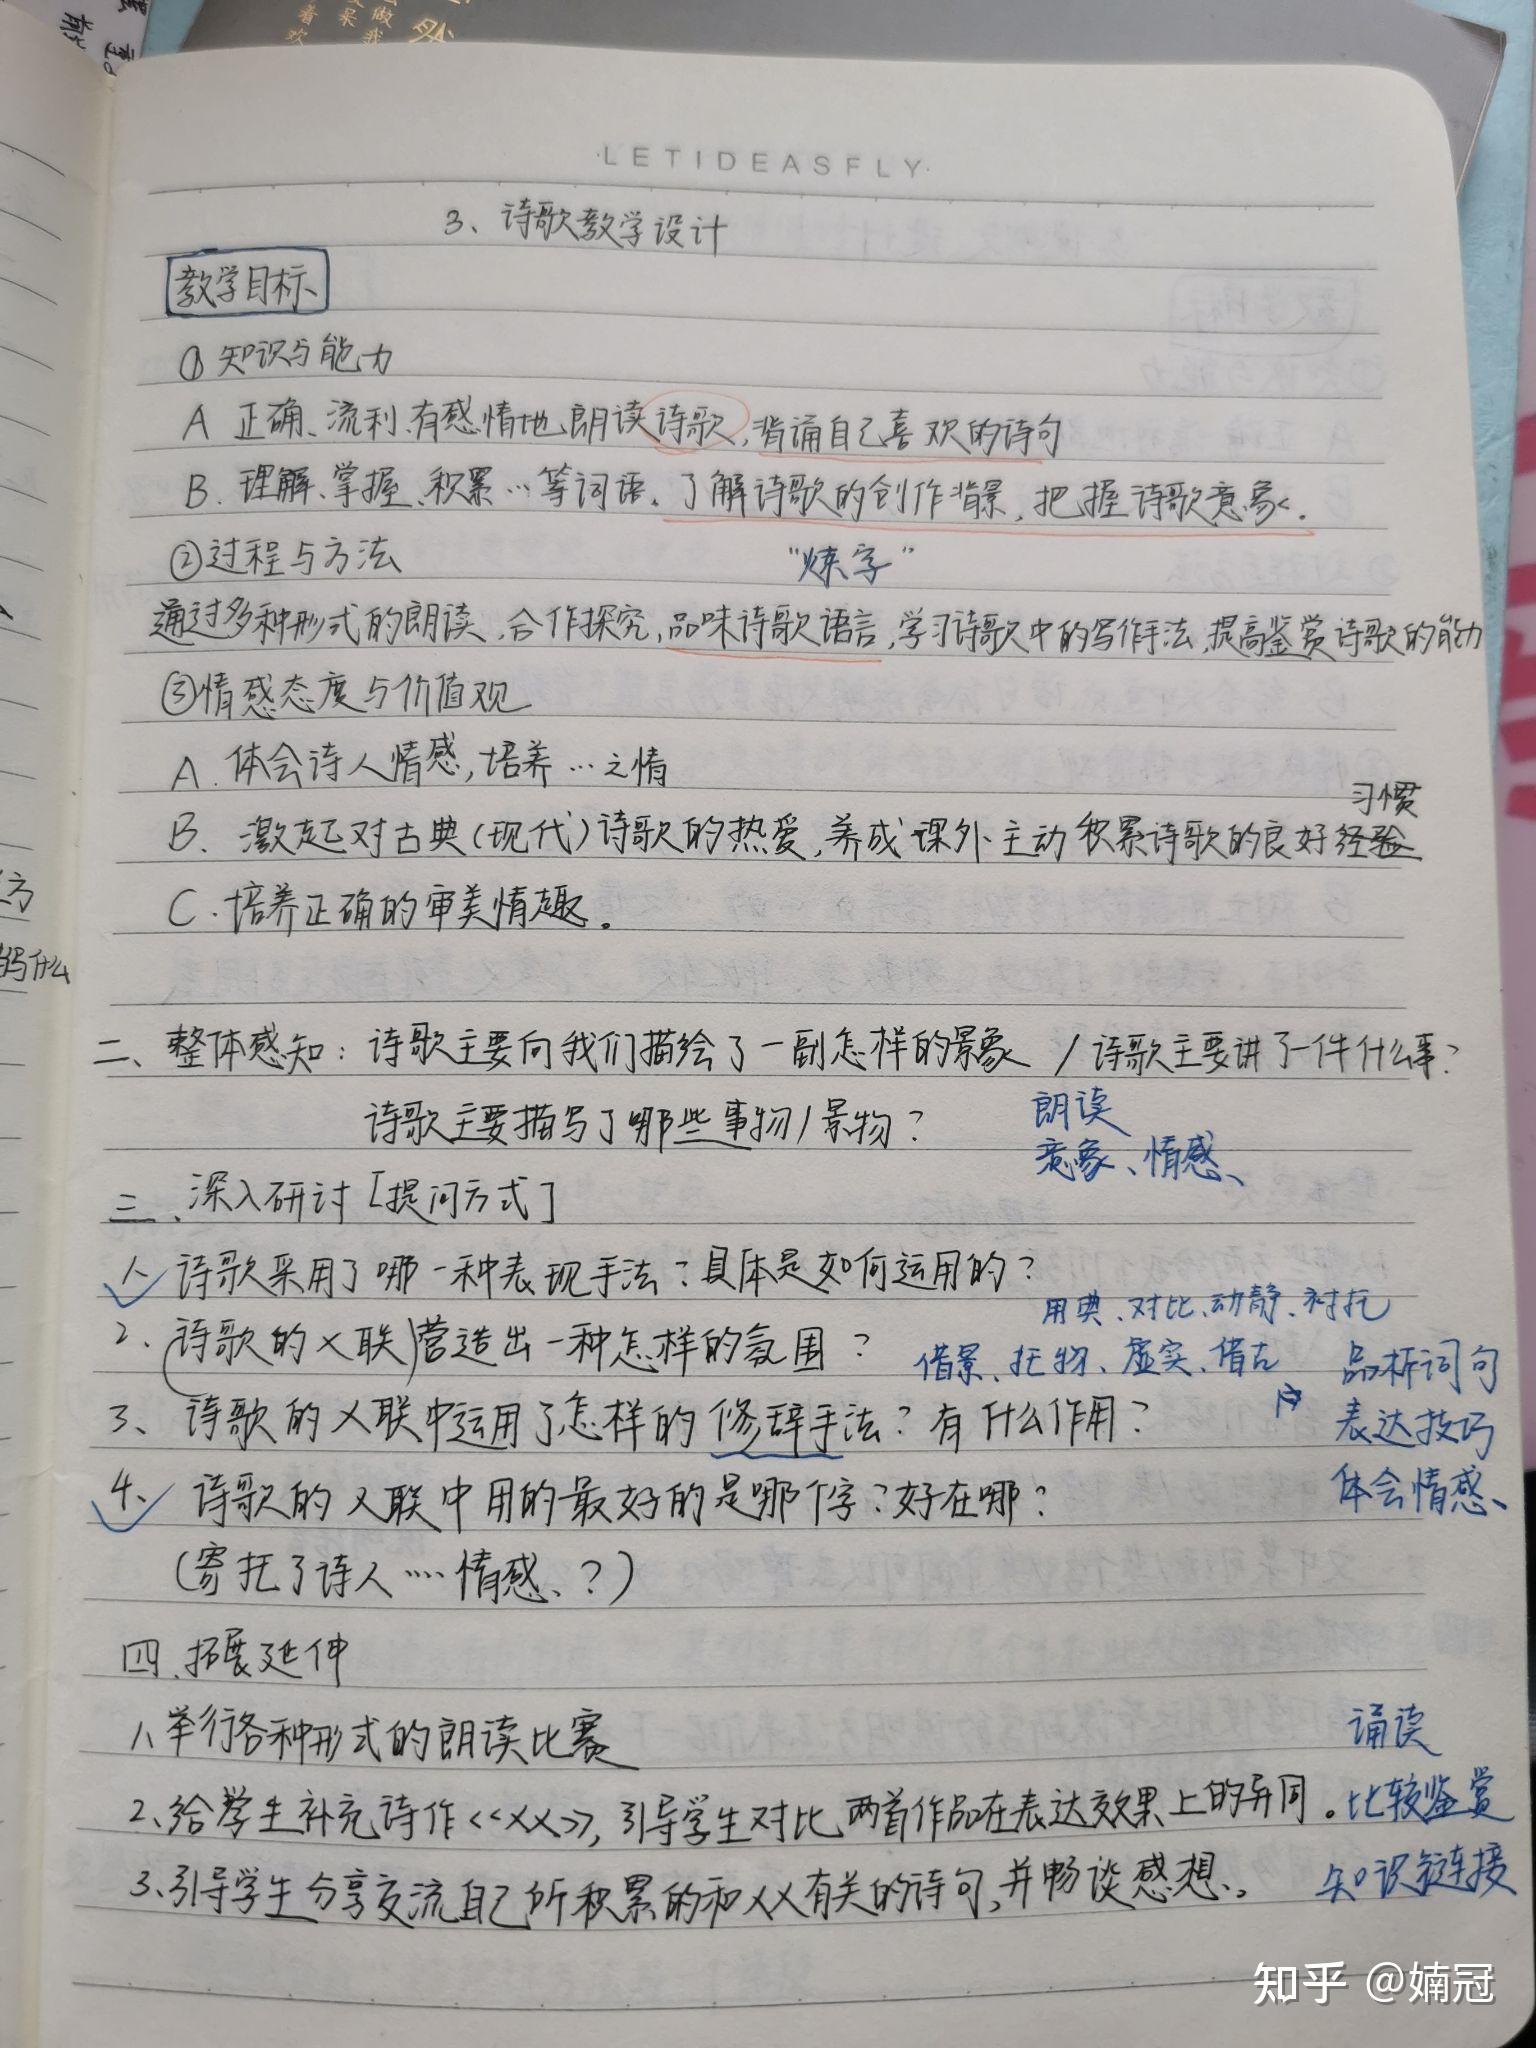 LETIDEASFLY
3、诗歌教学设计
教学目标
①知识与能力
A 正确、流利、有感情地朗读诗歌，背诵自己喜欢的诗句
B. 理解、掌握、积累…等词语。了解诗歌的创作背景，把握诗歌意象.
②过程与方法 “炼字”
通过多种形式的朗读，合作探究，品味诗歌语言，学习诗歌中的写作手法，提高鉴赏诗歌的能力
③情感态度与价值观
A. 体会诗人情感，培养…之情
习惯
B. 激起对古典(现代)诗歌的热爱，养成课外主动积累诗歌的良好经验
C. 培养正确的审美情趣。
二、整体感知：诗歌主要向我们描绘了一副怎样的景象 / 诗歌主要讲了一件什么事？
诗歌主要描写了哪些事物/景物？ 朗读
意象、情感、
三、深入研讨［提问方式］
1、诗歌采用了哪一种表现手法？具体是如何运用的？
用典、对比、动静、衬托
2. (诗歌的X联)营造出一种怎样的氛围？ 借景、托物、虚实、借古 品析词句
3、诗歌的X联中运用了怎样的修辞手法？有什么作用？ 表达技巧
4、诗歌的X联中用的最好的是哪个字？好在哪？ 体会情感、
(寄托了诗人……情感、？)
四、拓展延伸
1、举行各种形式的朗读比赛 诵读
2、给学生补充诗作<<XX>>，引导学生对比两首作品在表达效果上的异同。比较鉴赏
3、引导学生分享交流自己所积累的和XX有关的诗句，并畅谈感想。 知识链接
知乎 @婻冠